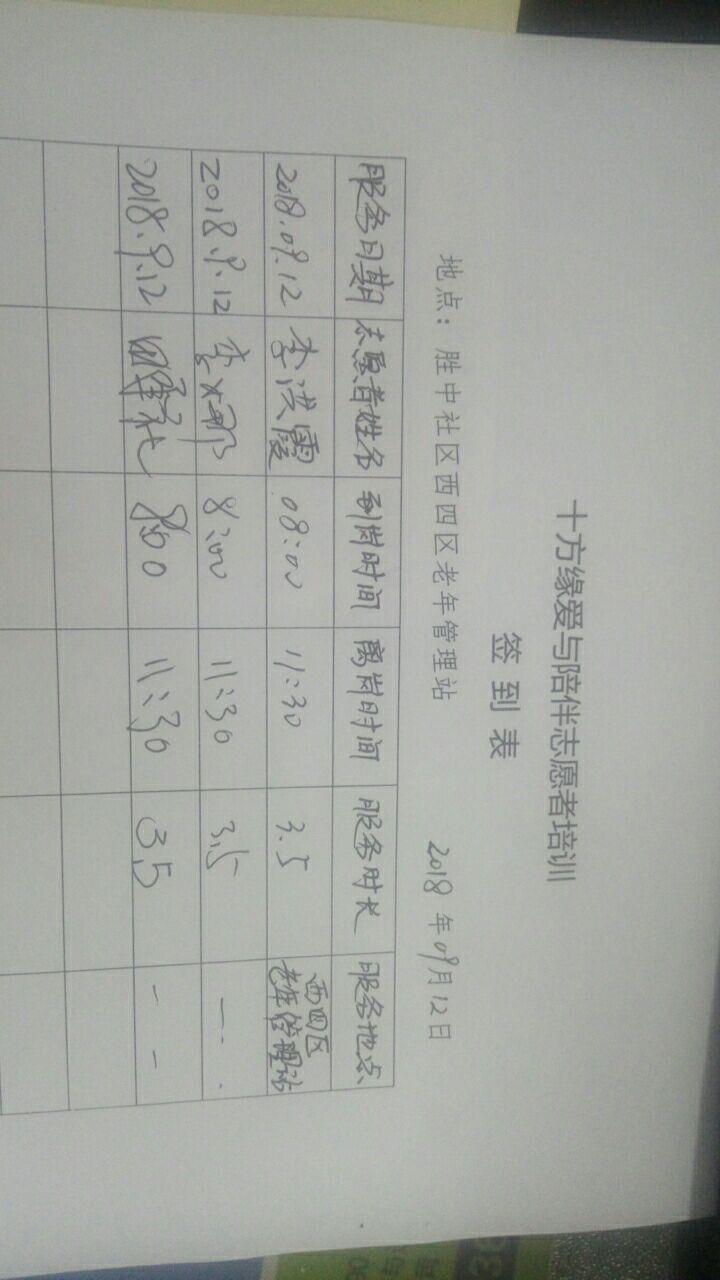 十方缘爱与陪伴志愿者培训
签到表
地点：胜中社区西四区老年管理站 2018年09月12日
服务日期 志愿者姓名 到岗时间 离岗时间 服务时长 服务地点
2018.09.12 李洪霞 08:00 11:30 3.5 西四区老年管理站
2018.9.12 8:00 11:30 3.5 — ..
2018.9.12 8:00 11:30 3.5 — —